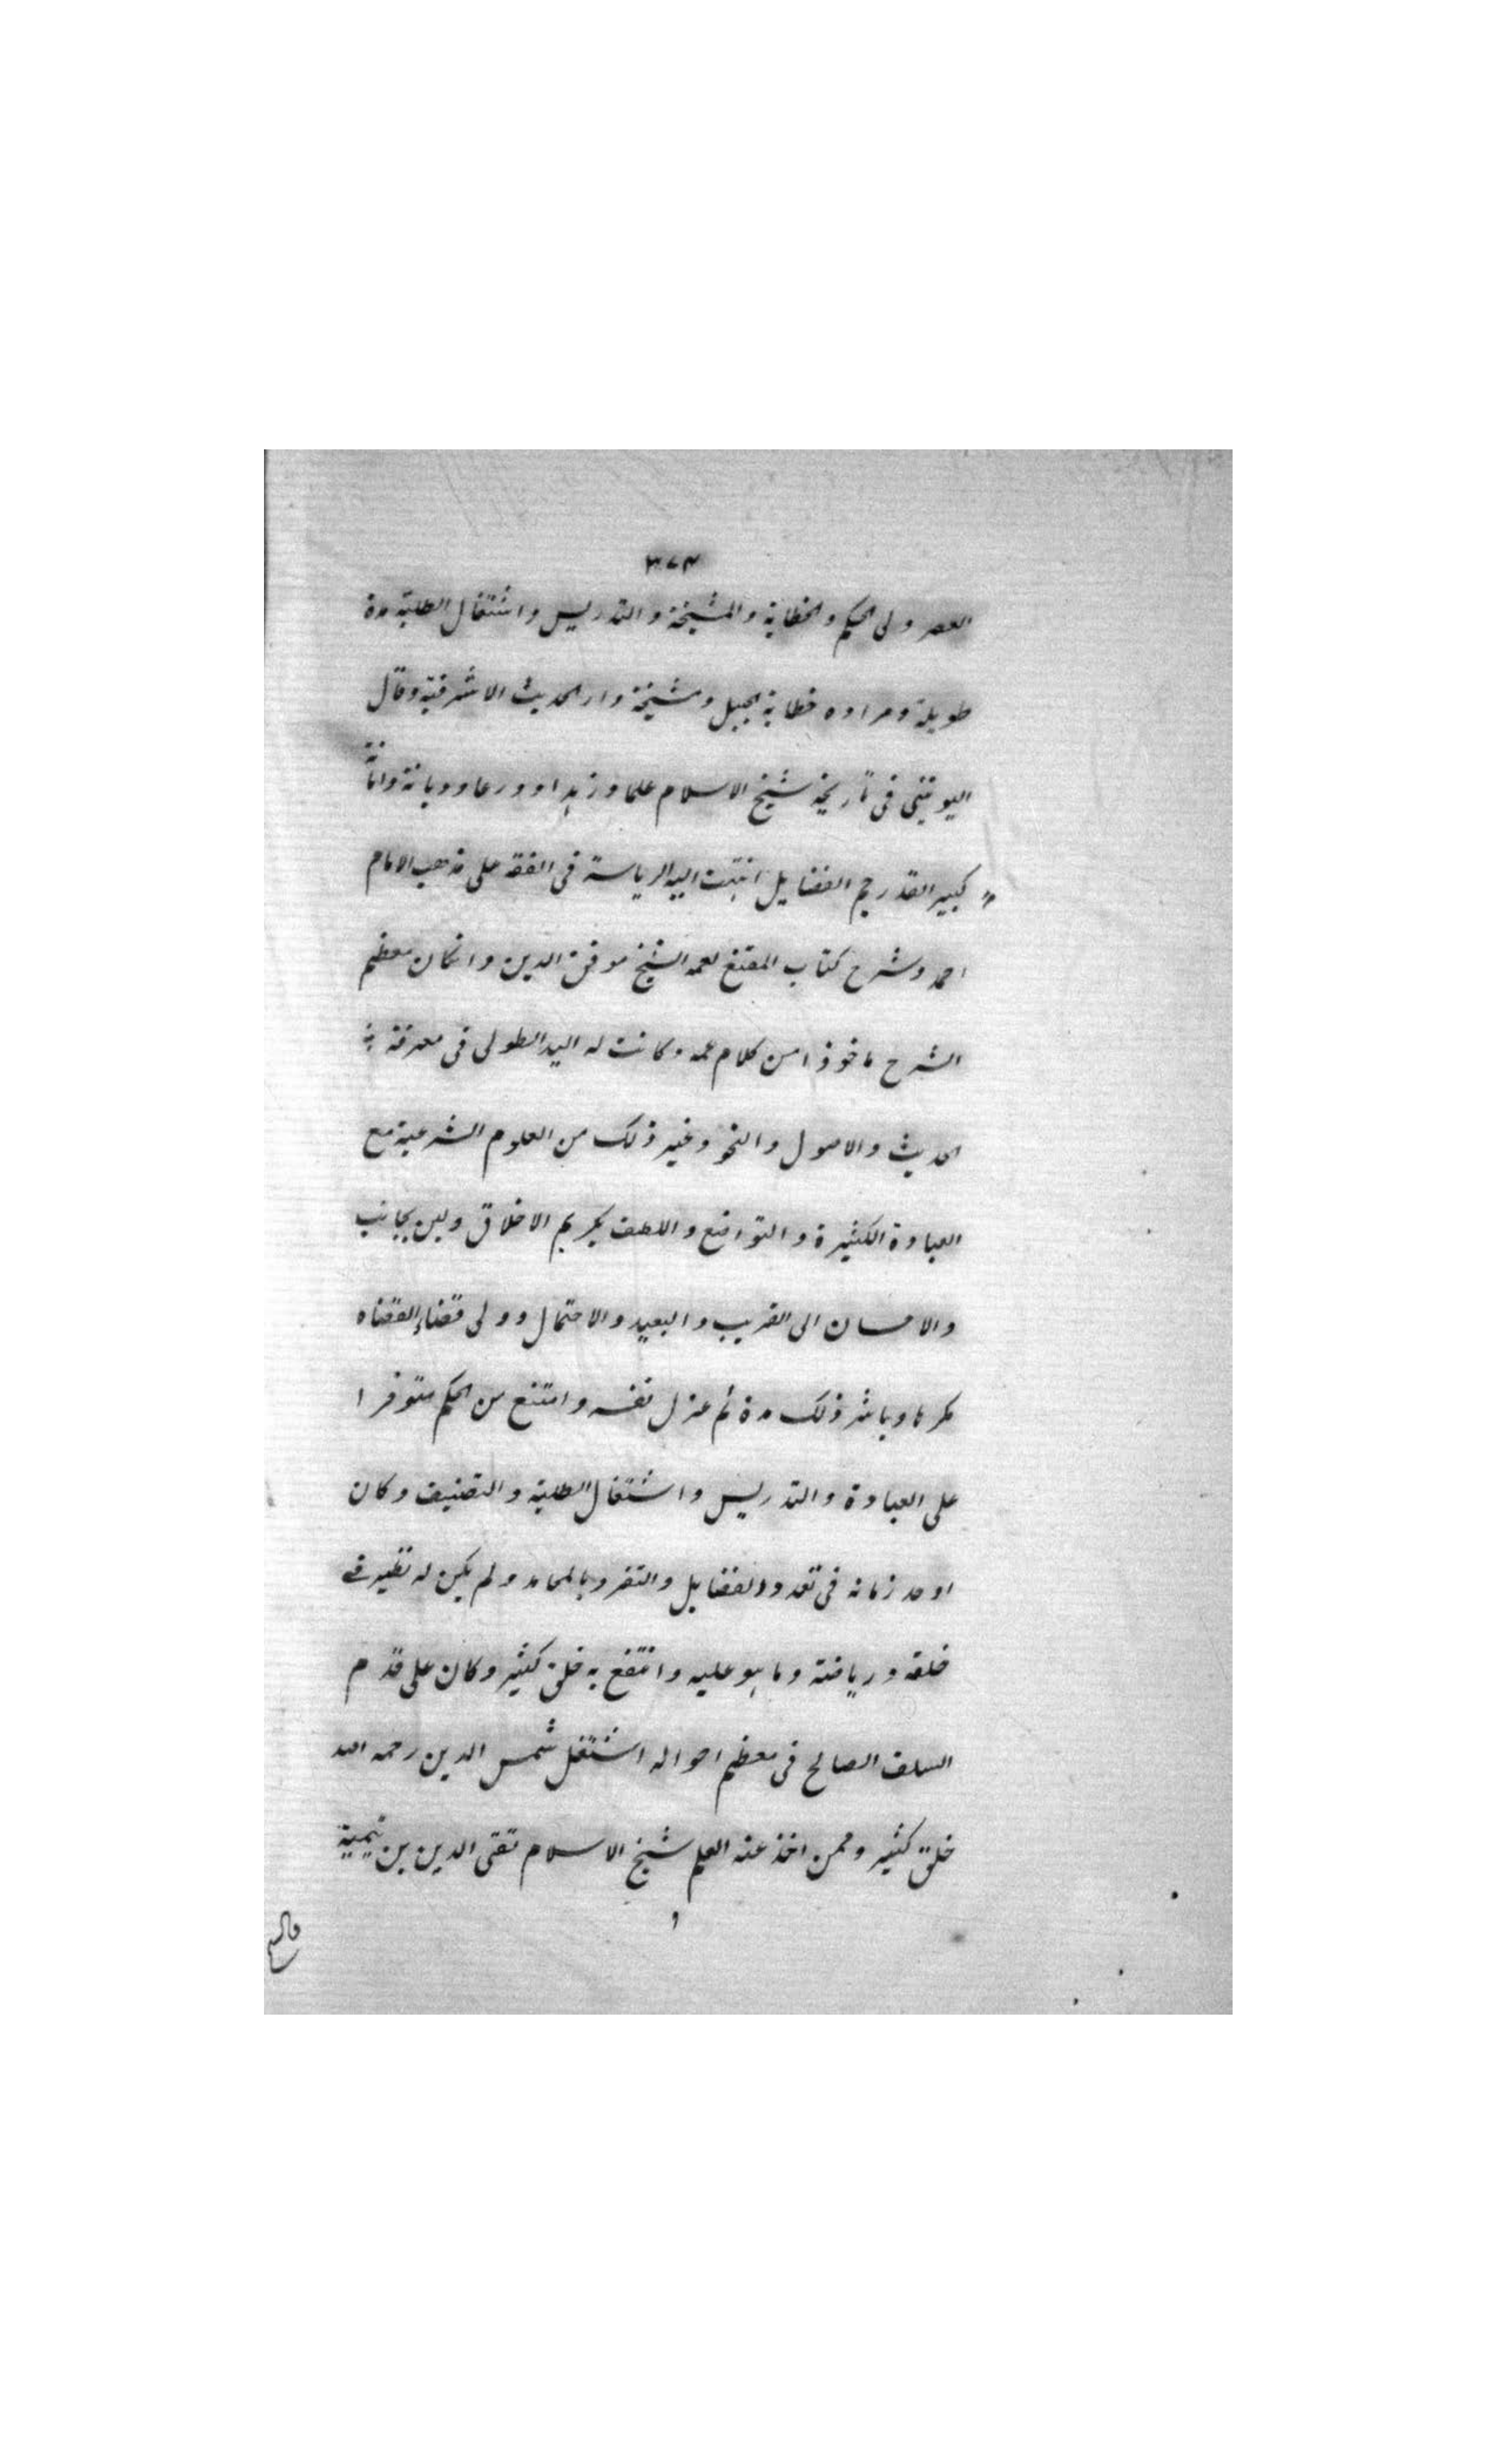 ٣٧٣
العصر ولى الحكم والخطابة والمشيخة والتدريس واشتغال الطلبة مدة
طويلة ومراده خطابة الجبل ومشيخة دار الحديث الاشرفية وقال
اليونينى فى تاريخه شيخ الاسلام علما وزهدا وورعا وديانة وامانة
كبير القدر جم الفضايل انتهت اليه الرياسة فى الفقه على مذهب الامام
احمد وشرح كتاب المقنع لعمه الشيخ موفق الدين وانكان معظم
الشرح ماخوذا من كلام عمه وكانت له اليد الطولى فى معرفة
الحديث والاصول والنحو وغير ذلك من العلوم الشرعية مع
العبادة الكثيرة والتواضع واللطف بكريم الاخلاق ولين بجانب
والاحسان الى القريب والبعيد والاحتمال وولى قضاء القضاه
مكرها وباشر ذلك مدة ثم عزل نفسه وامتنع من الحكم متوفرا
على العبادة والتدريس واشتغال الطلبة والتصنيف وكان
اوحد زمانه فى تعدد الفضايل والتفرد بالمحامد ولم يكن له نظير فى
خلقه ورياضته وما هو عليه وانتفع به خلق كثير وكان على قدم
السلف الصالح فى معظم احواله اشتغل شمس الدين رحمه الله
خلق كثير وممن اخذ عنه العلم شيخ الاسلام تقى الدين بن تيمية